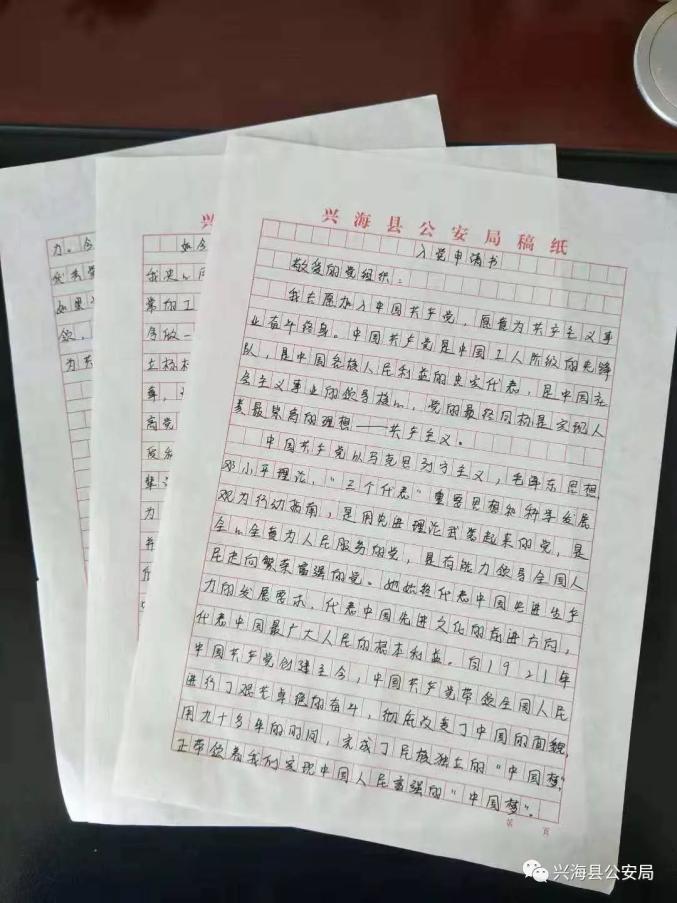 兴海县公安局稿纸
入党申请书
敬爱的党组织：
我志愿加入中国共产党，愿意为共产主义事
业奋斗终身。中国共产党是中国工人阶级的先锋
队，是中国各族人民利益的忠实代表，是中国社
会主义事业的领导核心，党的最终目标是实现人
类最崇高的理想——共产主义。
中国共产党以马克思列宁主义，毛泽东思想
邓小平理论，“三个代表”重要思想和科学发展
观为行动指南，是用先进理论武装起来的党，是
全心全意为人民服务的党，是有能力领导全国人
民走向繁荣富强的党。她始终代表中国先进生产
力的发展要求，代表中国先进文化的前进方向，
代表中国最广大人民的根本利益。自1921年
中国共产党创建至今，中国共产党带领全国人民
进行了艰苦卓绝的奋斗，彻底改变了中国的面貌，
用九十多年的时间，完成了民族独立的“中国梦”
正带领着我们实现中国人民富强的“中国梦”。
第 页
兴
如今
我决心
业的工
身做一
为
并
力。今
如果
为共
兴海县公安局